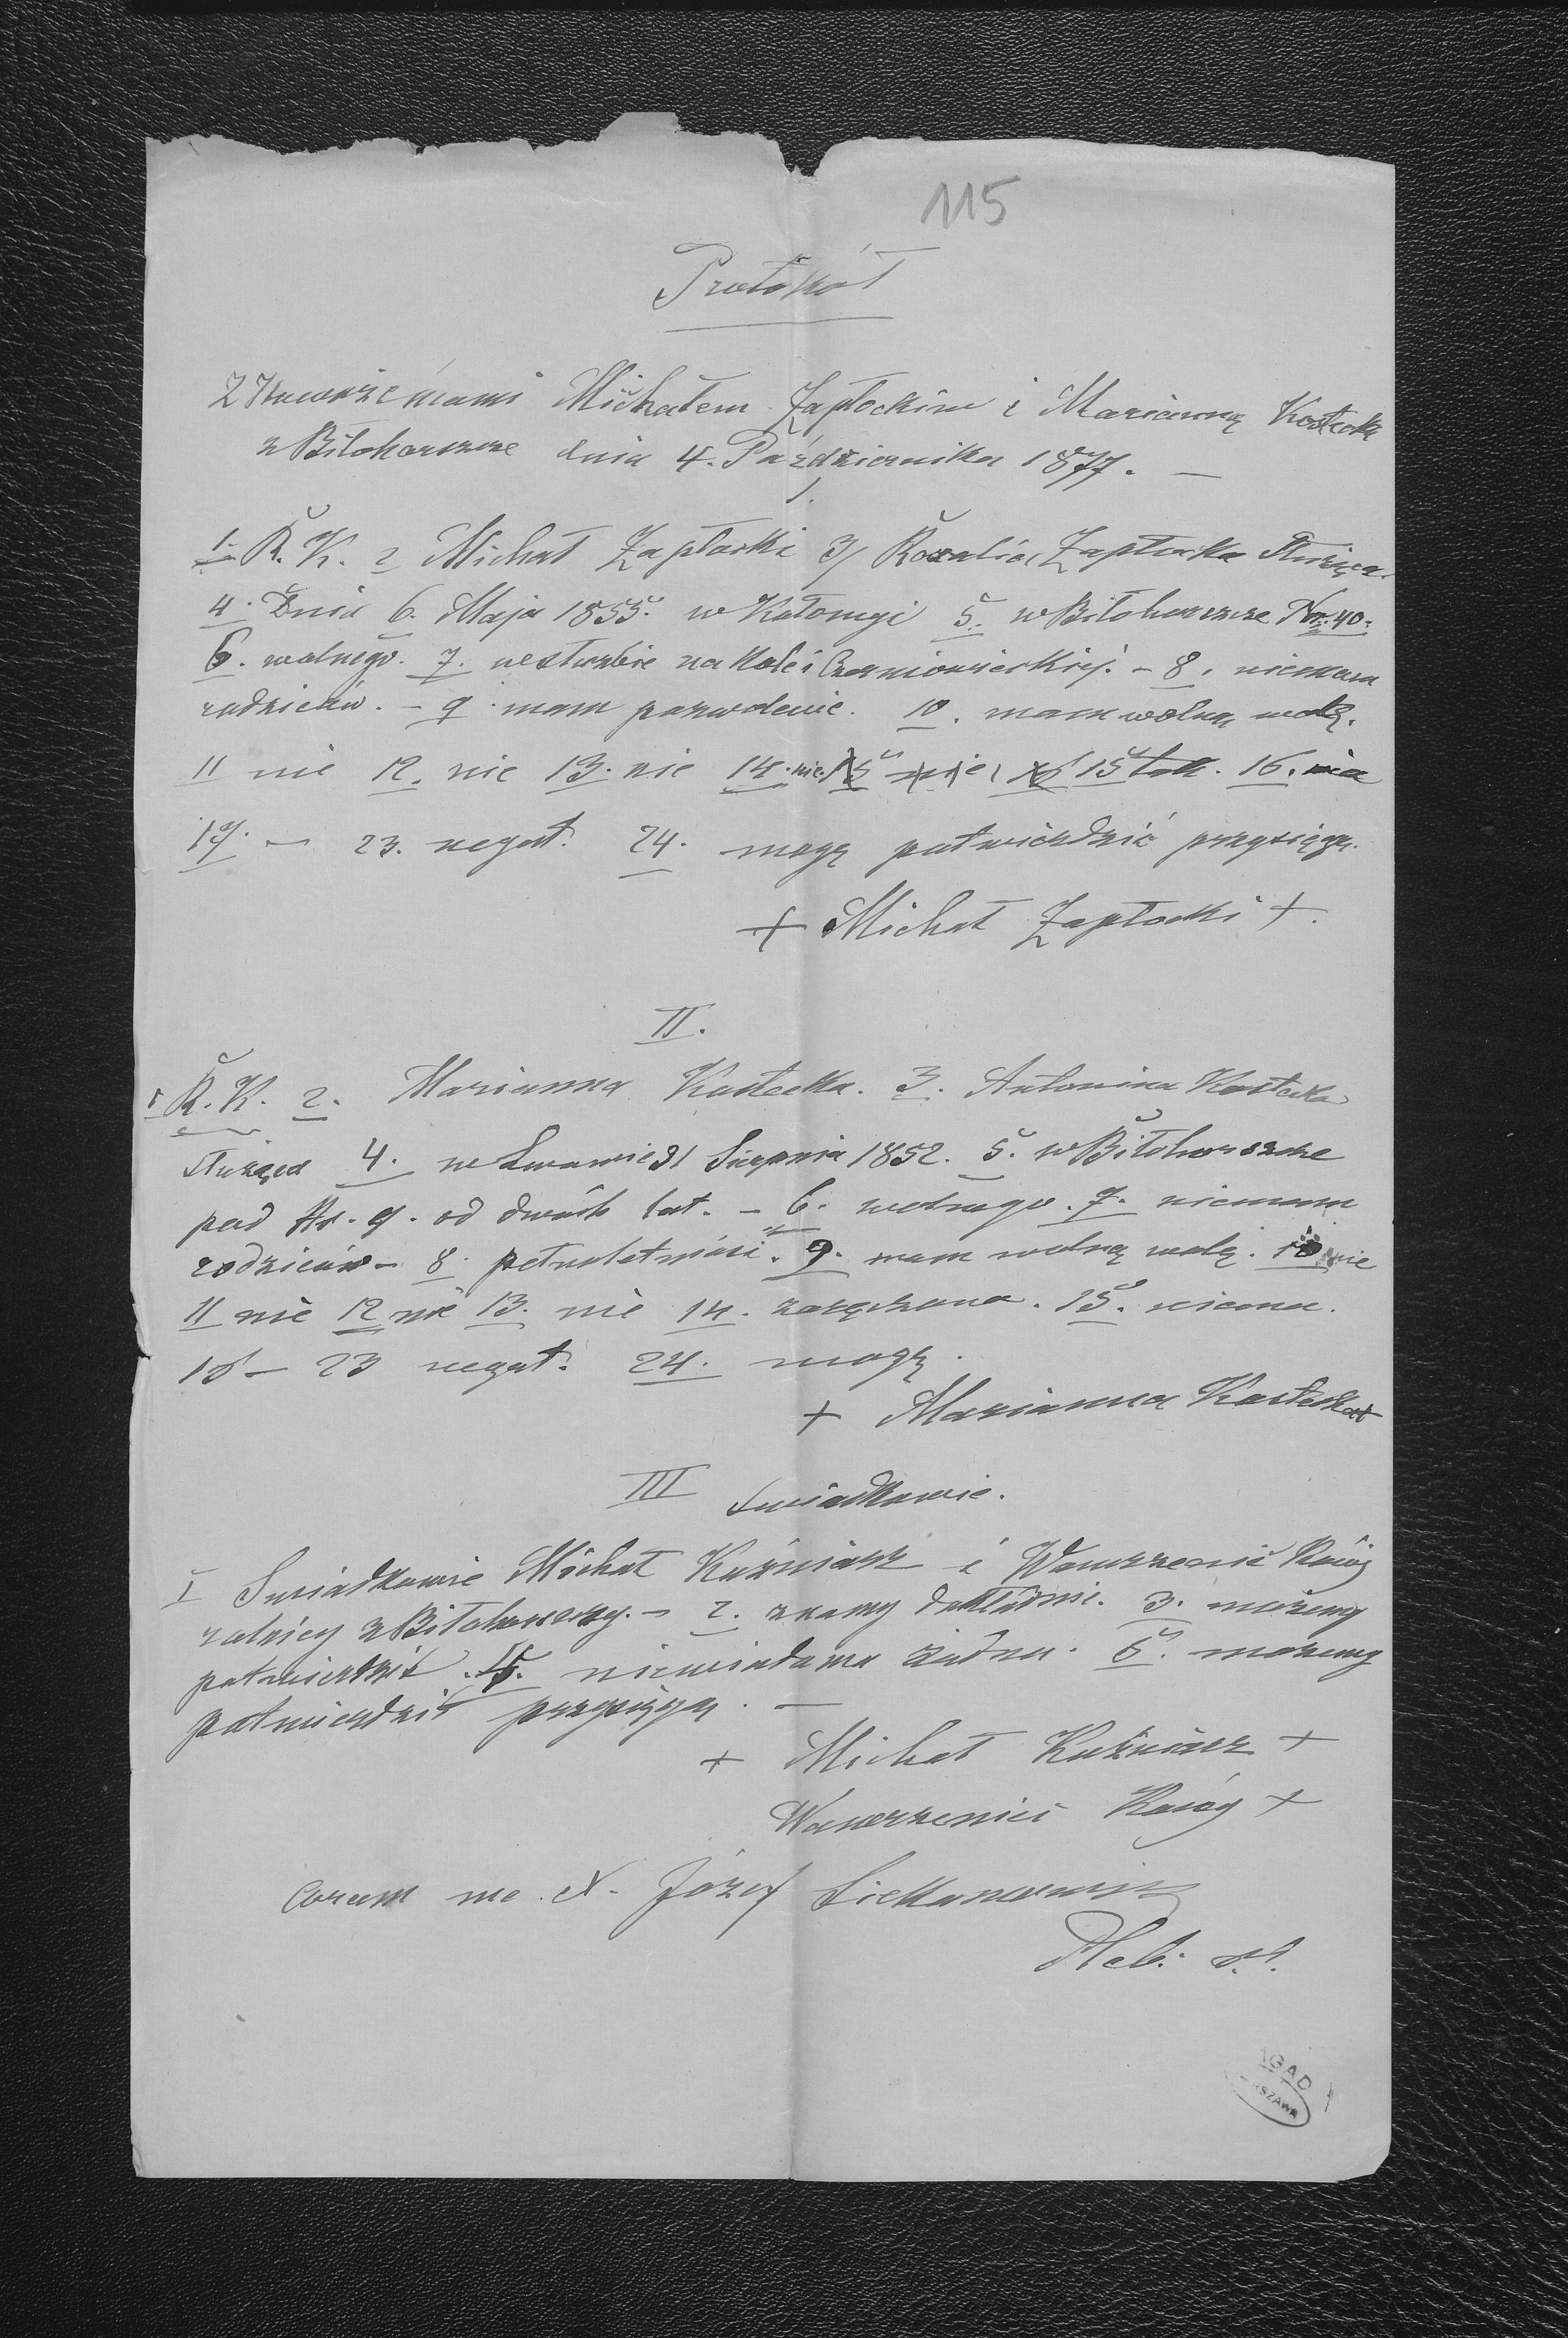 115
Protokół
Z Nowożeńcami Michałem Zapłockim i Marianną Kostecką
z Biłohorszcze dnia 4. Października 1877. —
I.
1. R. K. 2 Michał Zapłocki 3/ Rozalia Zapłocka służąca
4. Dnia 6. Maja 1855. w Kołomyi 5. w Biłohorszcze Nr. 40.
6. wolnego. 7. w służbie na kolei Czerniowieckiej. – 8. niemam
rodziców. – 9. mam pozwolenie. 10. mam wolną wolę.
11 nie 12. nie 13. nie 14. nie. 15 nie, 16 15 tak. 16. nie
17. – 23. negat. 24. mogę potwierdzić przysięgą.
+ Michał Zapłocki +.
II.
1 R. K. 2. Marianna Kostecka. 3. Antonina Kostecka
służąca 4. we Lwowie 31 Sierpnia 1852. 5. w Biłohorszcze
pod Nr. 9. od dwóch lat. – 6. wolnego. 7. niemam
rodziców – 8. pełnoletność. 9. mam wolną wolę. 10 nie
11 nie 12 nie 13. nie 14. zaręczona. 15. niema.
16 – 23 negat. 24. mogę.
+ Marianna Kostecka
III Swiadkowie.
I Swiadkowie Michał Kuźniarz i Wawrzeniec
rolnicy z Biłohorszczy. – 2. znamy dokładnie. 3. możemy
potwierdzić. 4. niewiadoma żadna. 5. możemy
potwierdzić przysięgą. —
+ Michał Kuźniarz +
Wawrzeniec +
Coram me X. Józef
AGAD
WARSZAWA